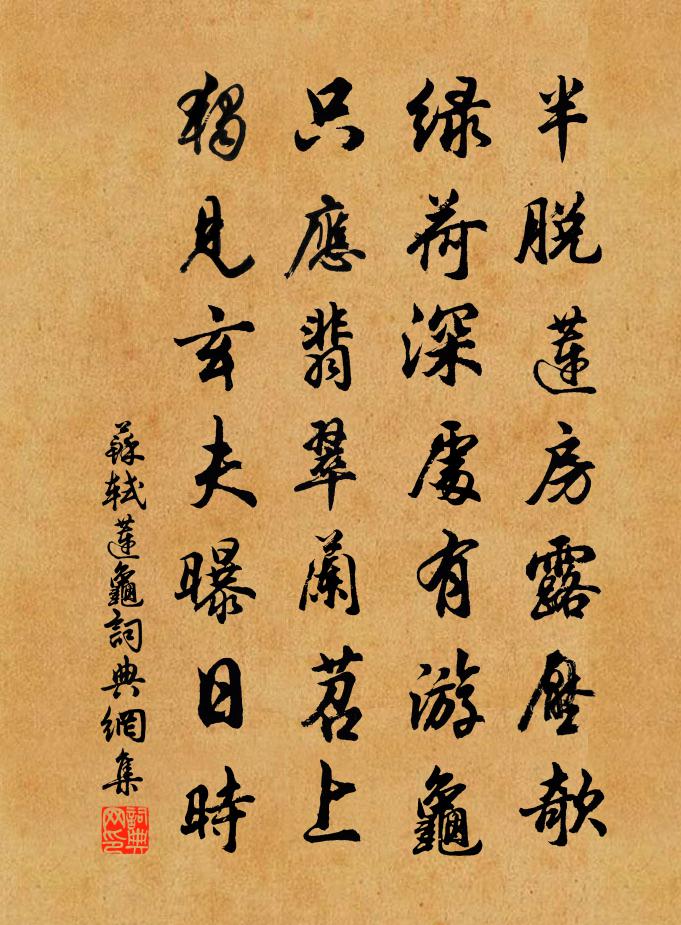 半脱蓮房露壓欹
緑荷深處有游龜
只應翡翠蘭苕上
獨見玄夫曝日時
蘇軾蓮龜詞典網集
詞典网印